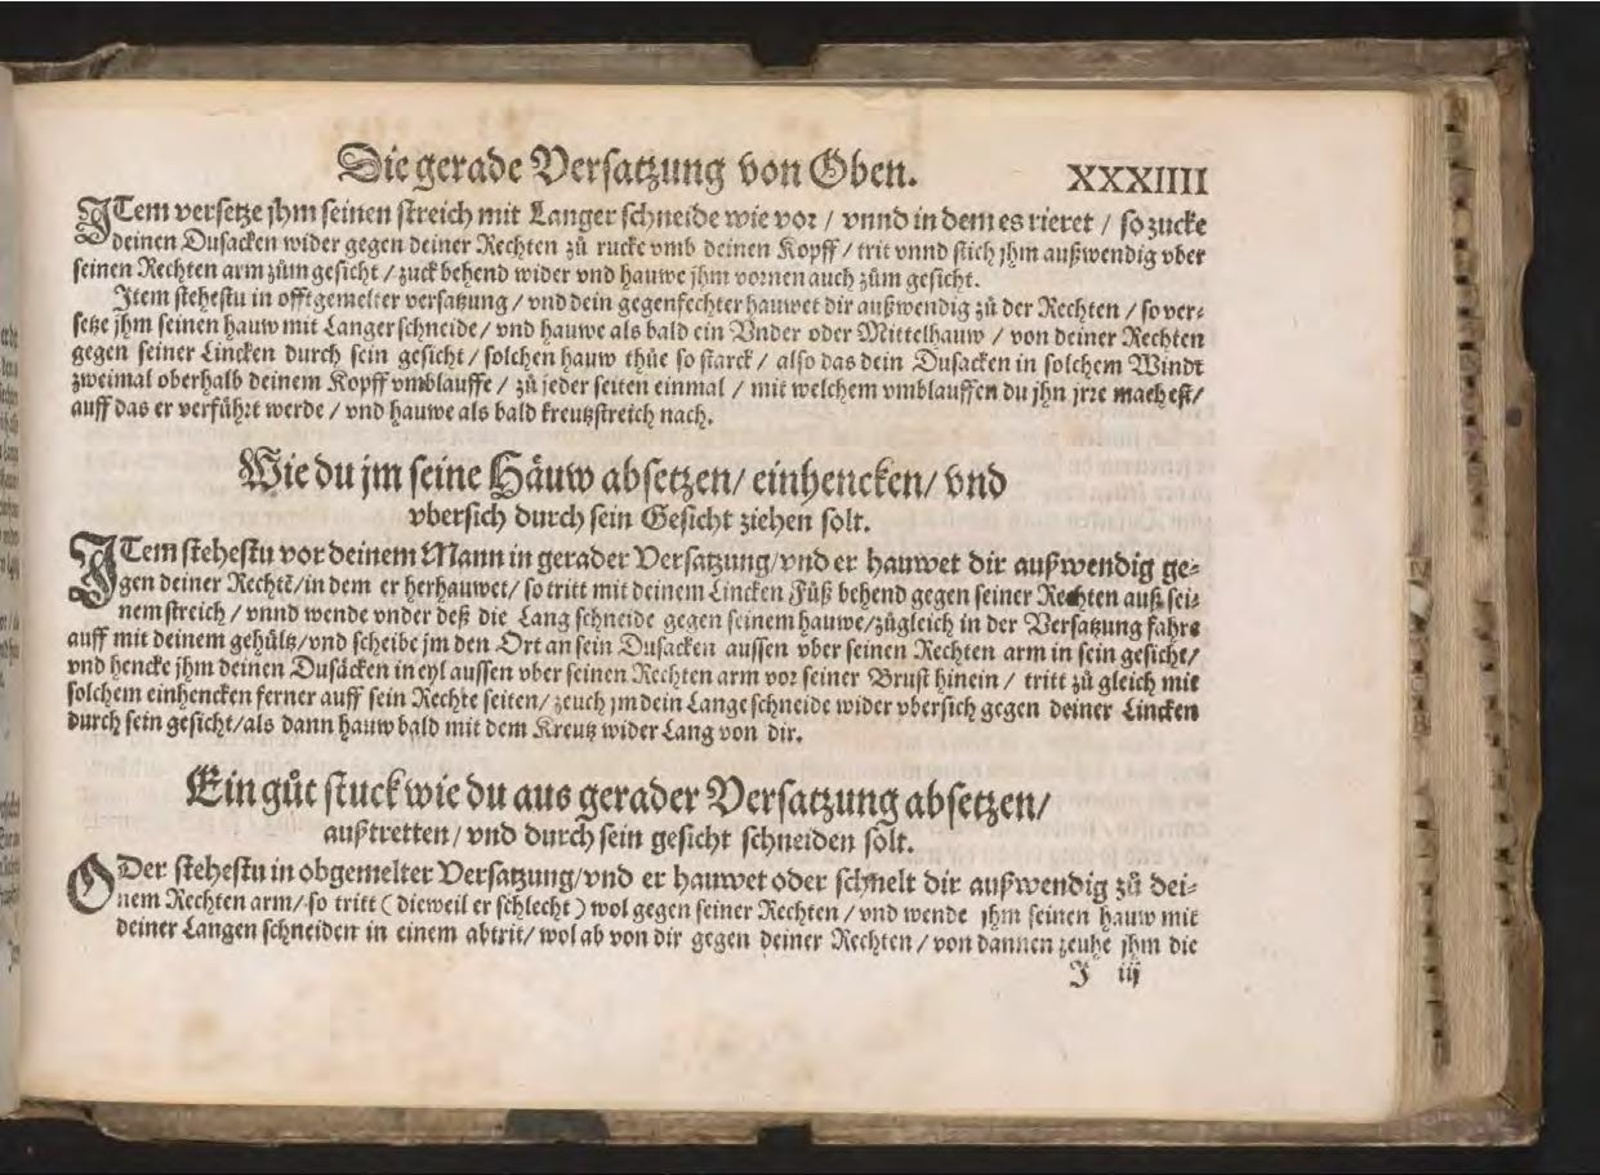 Die gerade Versatzung von Oben. XXXIIII
ITem versetze jhm seinen streich mit Langer schneide wie vor / vnnd in dem es rieret / so zucke
deinen Dusacken wider gegen deiner Rechten zů rucke vmb deinen Kopff / trit vnnd stich jhm außwendig vber
seinen Rechten arm zům gesicht / zuck behend wider vnd hauwe jhm vornen auch zům gesicht.
Item stehestu in offtgemelter versatzung / vnd dein gegenfechter hauwet dir außwendig zů der Rechten / so ver⸗
setze jhm seinen hauw mit Langer schneide / vnd hauwe als bald ein Vnder oder Mittelhauw / von deiner Rechten
gegen seiner Lincken durch sein gesicht / solchen hauw thůe so starck / also das dein Dusacken in solchem Windt
zweimal oberhalb deinem Kopff vmblauffe / zů jeder seiten einmal / mit welchem vmblauffen du jhn jrre machest /
auff das er verführt werde / vnd hauwe als bald kreutzstreich nach.
Wie du jm seine Häuw absetzen / einhencken / vnd
vbersich durch sein Gesicht ziehen solt.
ITem stehestu vor deinem Mann in gerader Versatzung / vnd er hauwet dir außwendig ge⸗
gen deiner Rechtẽ / in dem er herhauwet / so tritt mit deinem Lincken Fůß behend gegen seiner Rechten auß sei⸗
nem streich / vnnd wende vnder deß die Lang schneide gegen seinem hauwe / zůgleich in der Versatzung fahre
auff mit deinem gehültz / vnd scheibe jm den Ort an sein Dusacken aussen vber seinen Rechten arm in sein gesicht /
vnd hencke jhm deinen Dusäcken in eyl aussen vber seinen Rechten arm vor seiner Brust hinein / tritt zů gleich mit
solchem einhencken ferner auff sein Rechte seiten / zeuch jm dein Lange schneide wider vbersich gegen deiner Lincken
durch sein gesicht / als dann hauw bald mit dem Kreutz wider Lang von dir.
Ein gůt stuck wie du aus gerader Versatzung absetzen /
außtretten / vnd durch sein gesicht schneiden solt.
ODer stehestu in obgemelter Versatzung / vnd er hauwet oder schmelt dir außwendig zů dei⸗
nem Rechten arm / so tritt ( dieweil er schlecht ) wol gegen seiner Rechten / vnd wende jhm seinen hauw mit
deiner Langen schneiden in einem abtrit / wol ab von dir gegen deiner Rechten / von dannen zeuhe jhm die
I iij